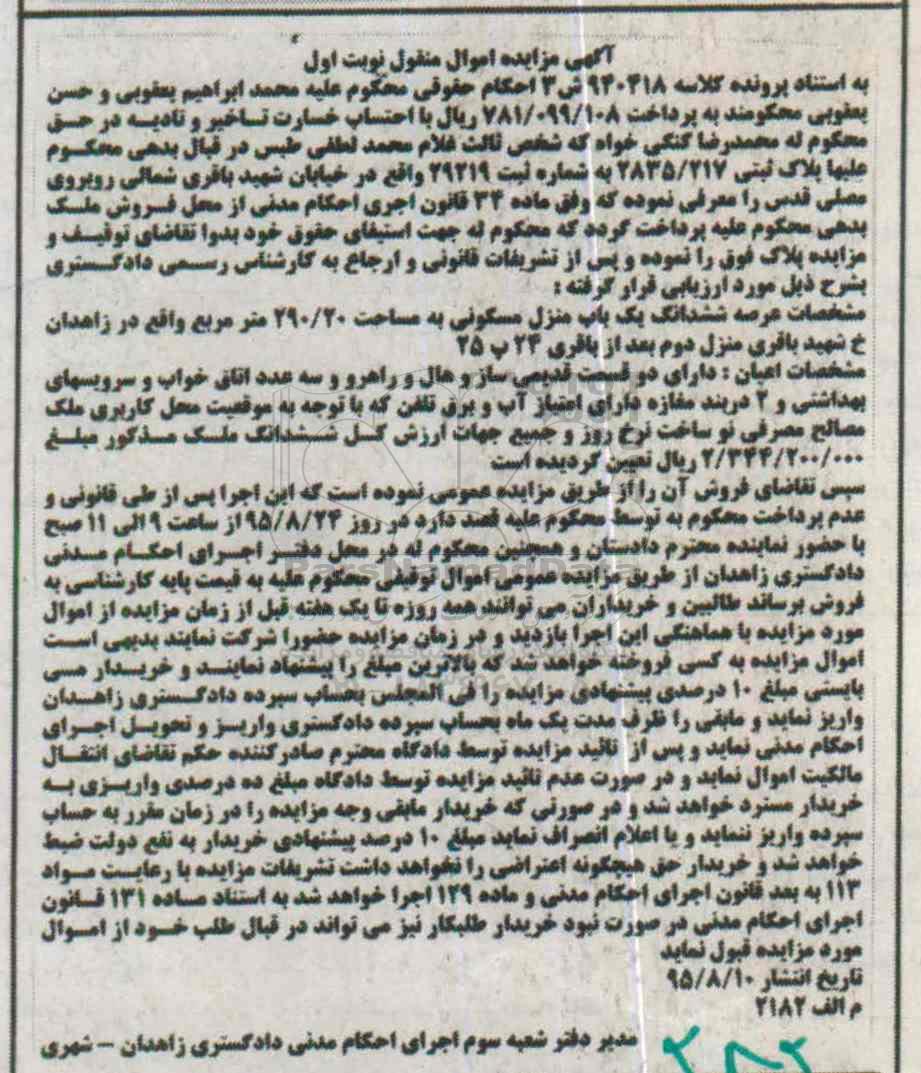 آگهی مزایده اموال منقول نوبت اول
به استناد پرونده کلاسه ۹۴۰۴۱۸ ش۳ احکام حقوقی محکوم علیه محمد ابراهیم یعقوبی و حسن
یعقوبی محکومند به پرداخت ۷۸۱/۰۹۹/۱۰۸ ریال با احتساب خسارت تاخیر و تادیه در حق
محکوم له محمدرضا کنکی خواه که شخص ثالث غلام محمد لطفی طبس در قبال بدهی محکوم
علیها پلاک ثبتی ۲۸۳۵/۲۱۷ به شماره ثبت ۲۹۲۱۹ واقع در خیابان شهید باقری شمالی روبروی
مصلی قدس را معرفی نموده که وفق ماده ۳۴ قانون اجری احکام مدنی از محل فروش ملک
بدهی محکوم علیه پرداخت گردد که محکوم له جهت استیفای حقوق خود بدوا تقاضای توقیف و
مزایده پلاک فوق را نموده و پس از تشریفات قانونی و ارجاع به کارشناس رسمی دادگستری
بشرح ذیل مورد ارزیابی قرار گرفته :
مشخصات عرصه ششدانگ یک باب منزل مسکونی به مساحت ۲۹۰/۲۰ متر مربع واقع در زاهدان
خ شهید باقری منزل دوم بعد از باقری ۲۴ پ ۲۵
مشخصات اعیان : دارای دو قسمت قدیمی ساز و هال و راهرو و سه عدد اتاق خواب و سرویسهای
بهداشتی و ۲ دربند مغازه دارای امتیاز آب و برق تلفن که با توجه به موقعیت محل کاربری ملک
مصالح مصرفی نو ساخت نرخ روز و جمیع جهات ارزش کل ششدانگ ملک مذکور مبلغ
۲/۳۴۴/۲۰۰/۰۰۰ ریال تعیین گردیده است
سپس تقاضای فروش آن را از طریق مزایده عمومی نموده است که این اجرا پس از طی قانونی و
عدم پرداخت محکوم به توسط محکوم علیه قصد دارد در روز ۹۵/۸/۲۴ از ساعت ۹ الی ۱۱ صبح
با حضور نماینده محترم دادستان و همچنین محکوم له در محل دفتر اجرای احکام مدنی
دادگستری زاهدان از طریق مزایده عمومی اموال توقیفی محکوم علیه به قیمت پایه کارشناسی به
فروش برساند طالبین و خریداران می توانند همه روزه تا یک هفته قبل از زمان مزایده از اموال
مورد مزایده با هماهنگی این اجرا بازدید و در زمان مزایده حضورا شرکت نمایند بدیهی است
اموال مزایده به کسی فروخته خواهد شد که بالاترین مبلغ را پیشنهاد نمایند و خریدار می
بایستی مبلغ ۱۰ درصدی پیشنهادی مزایده را فی المجلس بحساب سپرده دادگستری زاهدان
واریز نماید و مابقی را ظرف مدت یک ماه بحساب سپرده دادگستری واریز و تحویل اجرای
احکام مدنی نماید و پس از تائید مزایده توسط دادگاه محترم صادرکننده حکم تقاضای انتقال
مالکیت اموال نماید و در صورت عدم تائید مزایده توسط دادگاه مبلغ ده درصدی واریزی به
خریدار مسترد خواهد شد و در صورتی که خریدار مابقی وجه مزایده را در زمان مقرر به حساب
سپرده واریز ننماید و یا اعلام انصراف نماید مبلغ ۱۰ درصد پیشنهادی خریدار به نفع دولت ضبط
خواهد شد و خریدار حق هیچگونه اعتراضی را نخواهد داشت تشریفات مزایده با رعایت مواد
۱۱۳ به بعد قانون اجرای احکام مدنی و ماده ۱۲۹ اجرا خواهد شد به استناد ماده ۱۳۱ قانون
اجرای احکام مدنی در صورت نبود خریدار طلبکار نیز می تواند در قبال طلب خود از اموال
مورد مزایده قبول نماید
تاریخ انتشار ۹۵/۸/۱۰
م الف ۲۱۸۲
مدیر دفتر شعبه سوم اجرای احکام مدنی دادگستری زاهدان – شهری
ParsNamadData